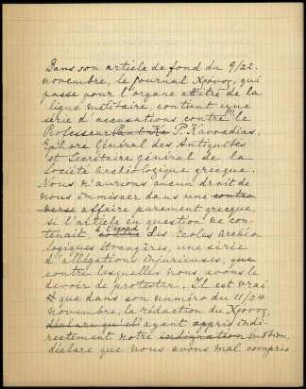 Dans son article de fond du 9/22.
novembre, le journal Χρόνος, qui
passe pour l'organe attitré de la
ligue militaire, contient une
série d'accusations contre le
Professeur P. Kavvadias,
Ephore Général des Antiquités
et Secrétaire Général de la
Société Archéologique grecque.
Nous n'aurions aucun droit de
nous immiscer dans une contro
verse affaire purement grecque,
si l'article en question ne con-
tenait à l'égard des Ecoles Archéo
logiques étrangères, une série
d'allégations injurieuses, 
contre lesquelles nous avons le
devoir de protester. Il est vrai
que dans son numéro du 11/24
novembre, la rédaction du Χρόνος,
déclare qu'il ayant appris indi-
rectement notre indignation émotion,
déclare que nous avons mal compris